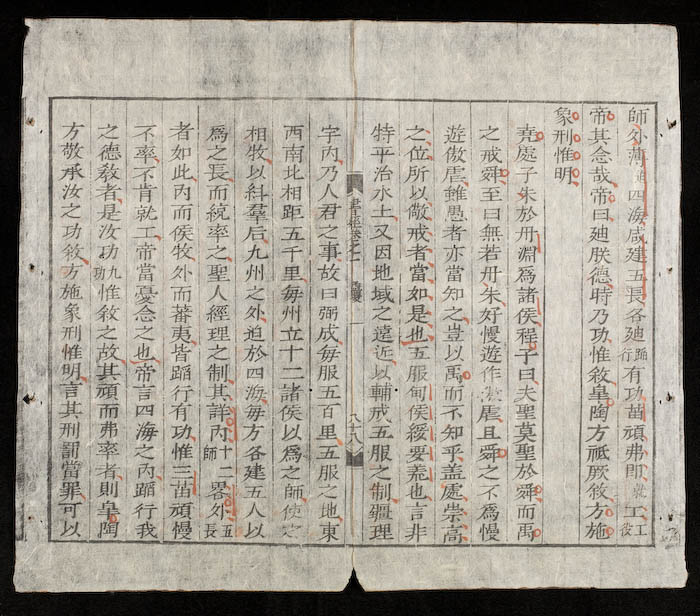 師外薄迫四海咸建五長各迪蹈行有功苗頑弗即就工工役
帝其念哉帝曰迪朕德時乃功惟敘皐陶方祗厥敘方施
象刑惟明
堯處子朱於丹淵爲諸侯程子曰夫聖莫聖於舜而禹
之戒舜至曰無若丹朱好慢遊作傲虐且舜之不爲慢
遊傲虐雖愚者亦當知之豈以禹而不知乎盖處崇高
之位所以儆戒者當如是也五服甸侯綏要荒也言非
特平治水土又因地域之遠近以輔成五服之制疆理
書經卷之一 益稷 八十八
字內乃人君之事故曰弼成每服五百里五服之地東
西南北相距五千里每州立十二諸侯以爲之師使之
相牧以糾羣后九州之外迫於四海每方各建五人以
爲之長而統率之聖人經理之制其詳內十二師畧外五長
者如此內而侯牧外而蕃夷皆蹈行有功惟三苗頑慢
不率不肯就工帝當憂念之也帝言四海之內蹈行我
之德敎者是汝功九功惟敘之故其頑而弗率者則皐陶
方敬承汝之功敘方施象刑惟明言其刑罰當罪可以